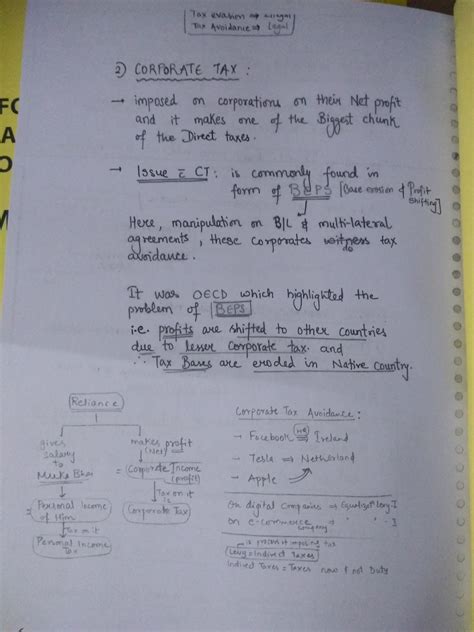 Tax evasion ⇒ illegal
Tax Avoidance ⇒ Legal
2) CORPORATE TAX :
→ imposed on corporations on their Net profit
and it makes one of the Biggest chunk
of the Direct taxes.
→ Issue c̄ CT : is commonly found in
form of BEPS [Base erosion & Profit
Shifting]
Here, manipulation on B/L & multi-lateral
agreements, these corporates witness tax
do
avoidance.
It was OECD which highlighted the
problem of BEPS
i.e. profits are shifted to other countries
due to lesser corporate tax and
∴ Tax Bases are eroded in Native Country.
Reliance
gives
salary
to
Muka Bhai
= Personal Income
of
Tax on it
Personal Income
Tax
makes profit
(Net)
= Corporate Income
(profit)
Tax on it
is
Corporate Tax
Corporate Tax Avoidance :
→ Facebook ⇒ Ireland
HQ
→ Tesla ⇒ Netherland
→ Apple
On digital companies ⇒ Equalizat Levy I
on e-commerce company ⇒ " " I
is process of imposing tax
Levy = Indirect Taxes
Indirect Taxes = Taxes now & not Duty